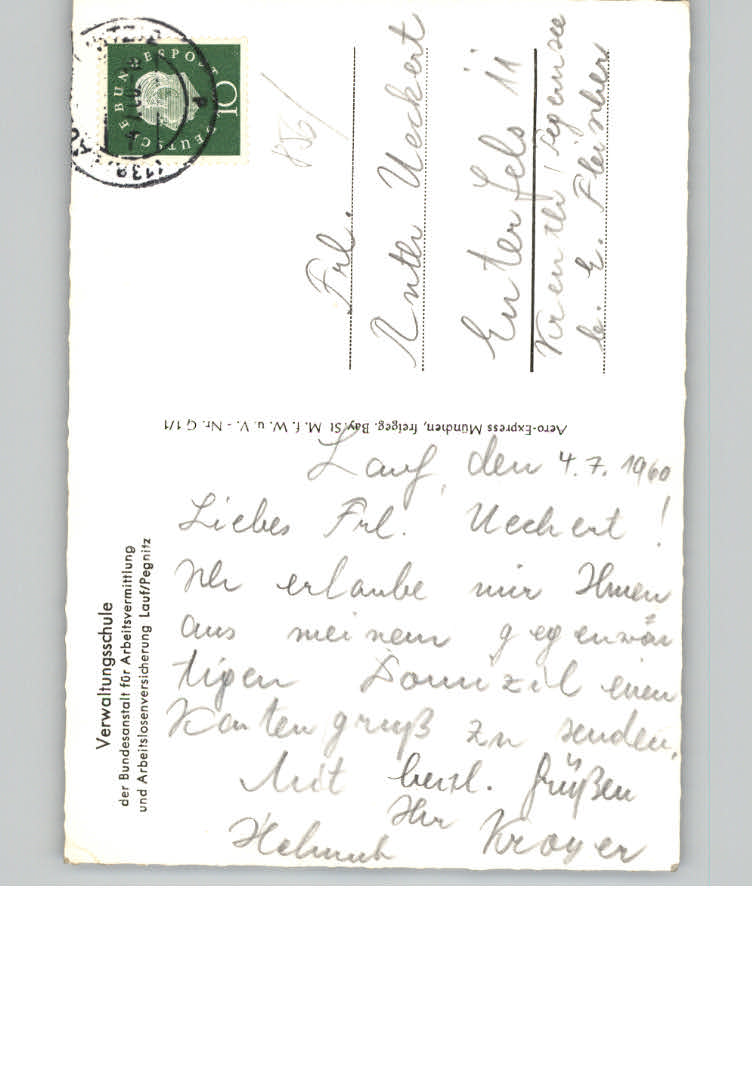 Verwaltungsschule
der Bundesanstalt für Arbeitsvermittlung
und Arbeitslosenversicherung Lauf/Pegnitz
Lauf, den 4.7.1960
Liebes Frl. Ueckert!
Ich erlaube mir Ihnen
aus meinem gegenwär=
tigen Domizil einen
Kartengruß zu senden.
Mit herzl. Grüßen
Ihr
Helmut Kroyer
Aero-Express München, freigeg. Bay. St. M. f. W. u. V. - Nr. G 1/1
DEUTSCHE BUNDESPOST
10
Frl.
Ueckert
Enterfels ii
Kreuth/Tegernsee
b. E.